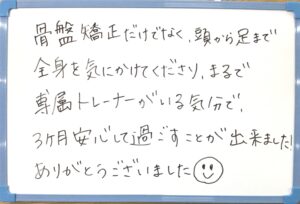 骨盤矯正だけでなく、頭から足まで
全身を気にかけてくださり、まるで
専属トレーナーがいる気分で、
3ヶ月安心して過ごすことが出来ました!
ありがとうございました